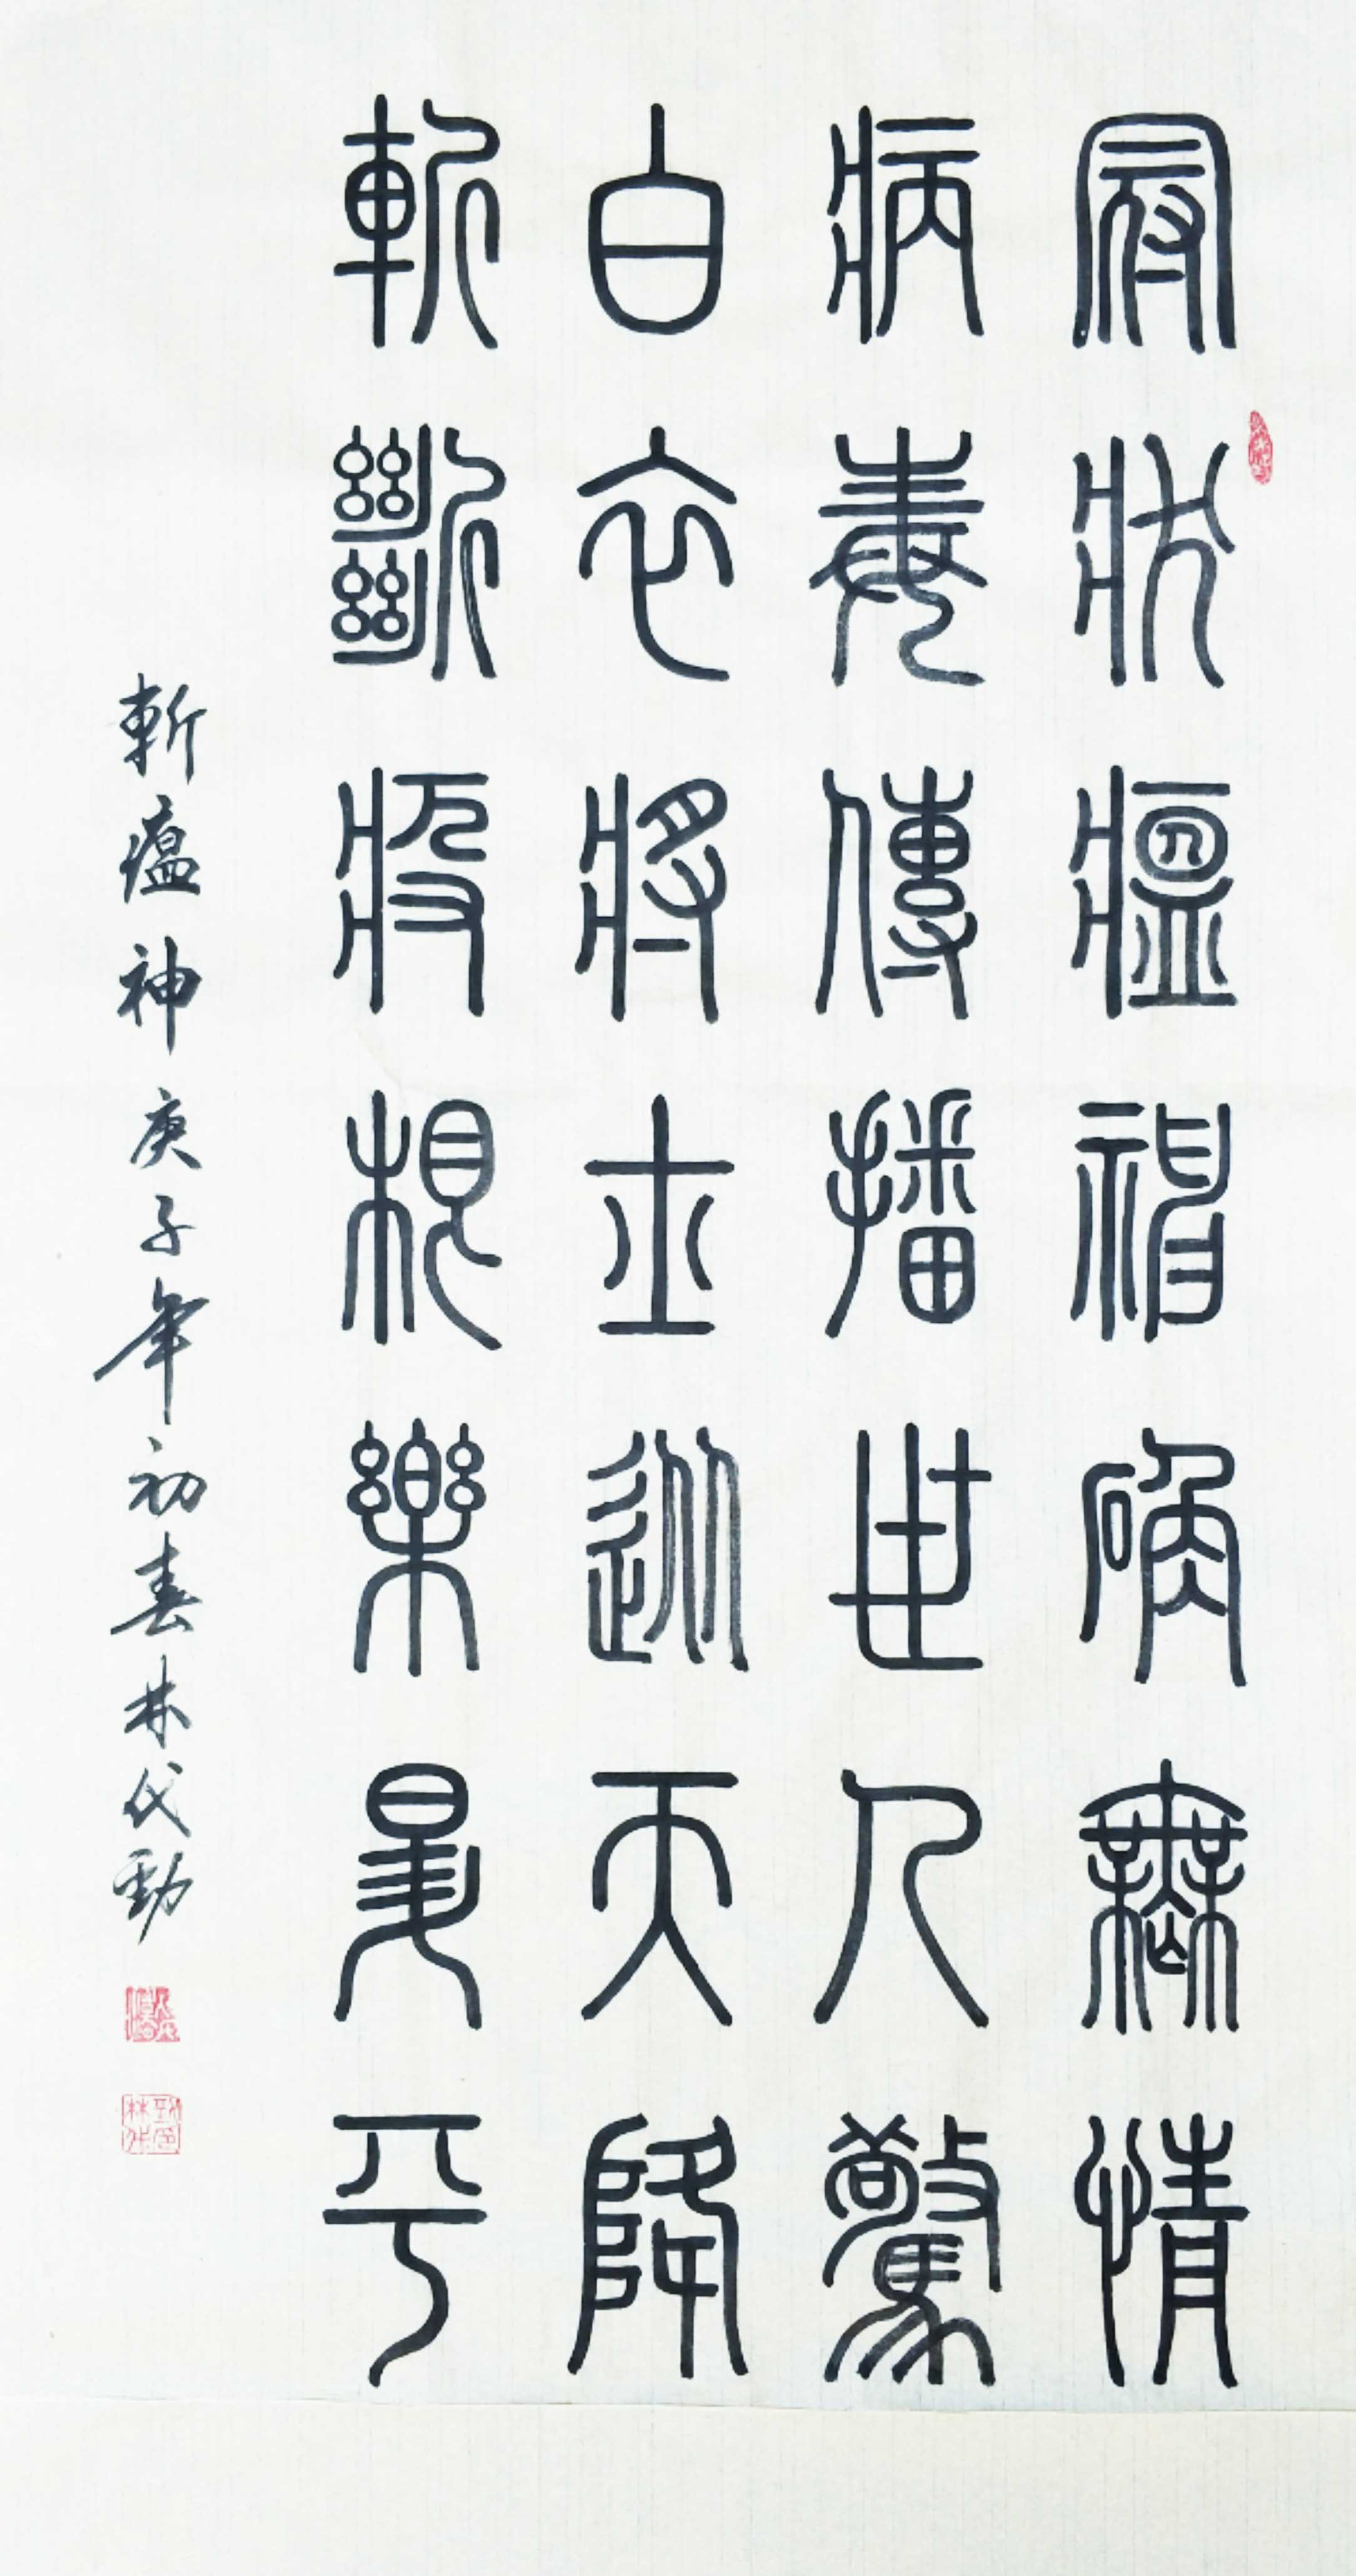 冠狀瘟神無情
病毒傳播世人驚
白衣將士巡天降
斬斷疫根樂昇平
斬瘟神 庚子年初春 林代勁